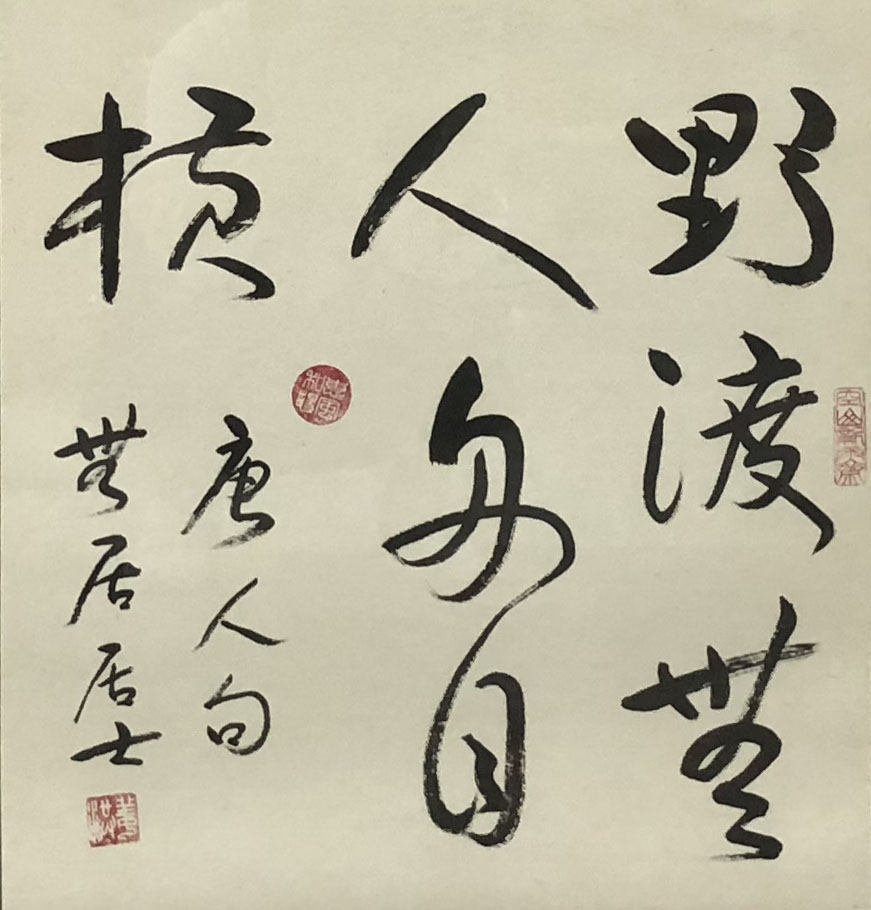 野渡無
人舟自
橫
唐人句
無居居士